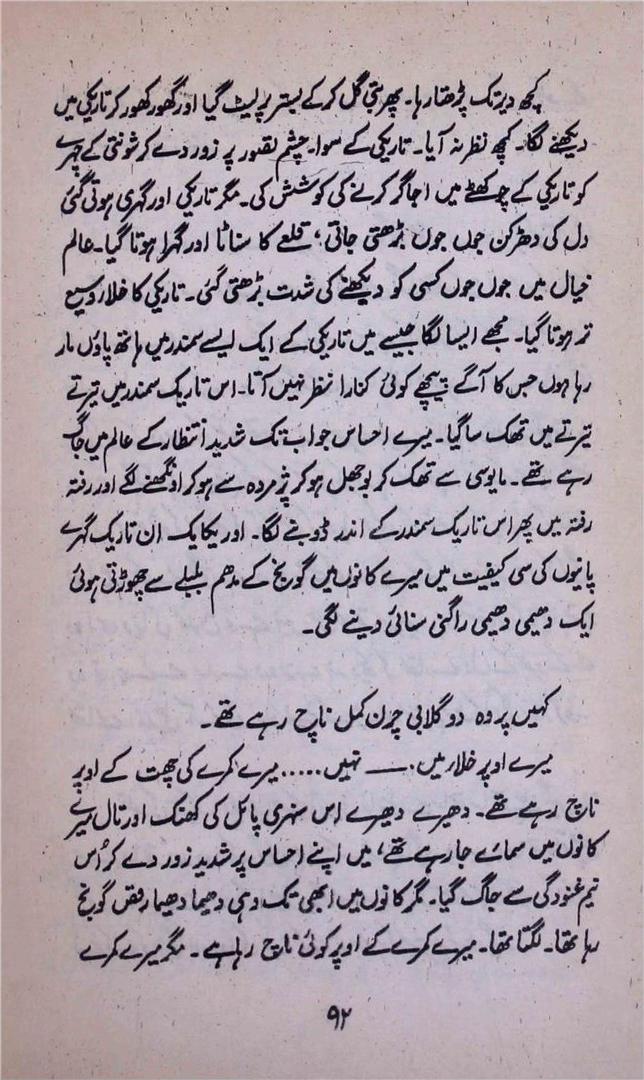 کچھ دیر تک پڑھتا رہا۔ پھر بتی گل کر کے بستر پر لیٹ گیا اور گھور گھور کر تاریکی میں
دیکھنے لگا۔ کچھ نظر نہ آیا۔ تاریکی کے سوا۔ چشم تصور پر زور دے کر شونتی کے چہرے
کو تاریکی کے چوکھٹے میں اجاگر کرنے کی کوشش کی۔ مگر تاریکی اور گہری ہوتی گئی
دل کی دھڑکن جوں جوں بڑھتی جاتی، قلعے کا سناٹا اور گہرا ہوتا گیا۔ عالم
خیال میں جوں جوں کسی کو دیکھنے کی شدت بڑھتی گئی۔ تاریکی کا خلار وسیع
تر ہوتا گیا۔ مجھے ایسا لگا جیسے میں تاریکی کے ایک ایسے سمندر میں ہاتھ پاؤں مار
رہا ہوں جس کا آگے پیچھے کوئی کنارا نظر نہیں آتا۔ اس تاریک سمندر میں تیرتے
تیرتے میں تھک سا گیا۔ میرے احساس جو اب تک شدید انتظار کے عالم میں جاگ
رہے تھے۔ مایوسی سے تھک کر بوجھل ہو کر پژمردہ سے ہو کر اونگھنے لگے اور رفتہ
رفتہ میں پھر اس تاریک سمندر کے اندر ڈوبنے لگا۔ اور یکایک ان تاریک گہرے
پانیوں کی سی کیفیت میں میرے کانوں میں گونج کے مدھم بلبلے سے چھوڑتی ہوئی
ایک دھیمی دھیمی راگنی سنائی دینے لگی۔
کہیں پر وہ دو گلابی چرن کمل ناچ رہے تھے۔
میرے اوپر خلار میں ۔ــــ نہیں ..... میرے کمرے کی چھت کے اوپر
ناچ رہے تھے۔ دھیرے دھیرے اس سنہری پائل کی کھنک اور تال میرے
کانوں میں سمائے جا رہے تھے، میں اپنے احساس پر شدید زور دے کر اُس
نیم غنودگی سے جاگ گیا۔ مگر کانوں میں ابھی تک وہی دھیما دھیما رقص گونج
رہا تھا۔ لگتا تھا۔ میرے کمرے کے اوپر کوئی ناچ رہا ہے۔ مگر میرے کمرے
۹۲